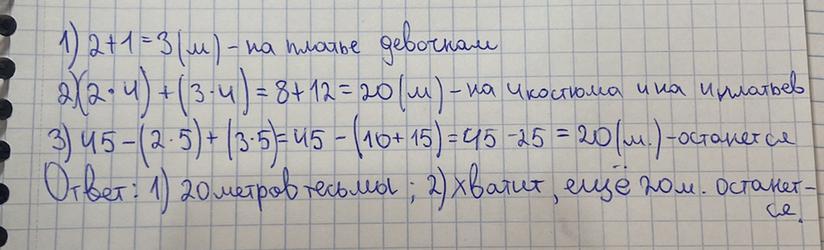 1) 2+1=3(м) - на платье девочкам
2)(2·4)+(3·4)=8+12=20(м) - на 4 костюма и на 4 платьев
3) 45-(2·5)+(3·5)=45-(10+15)=45-25=20(м.) - останется
Ответ: 1) 20 метров тесьмы; 2) хватит, ещё 20 м. останет-
ся.